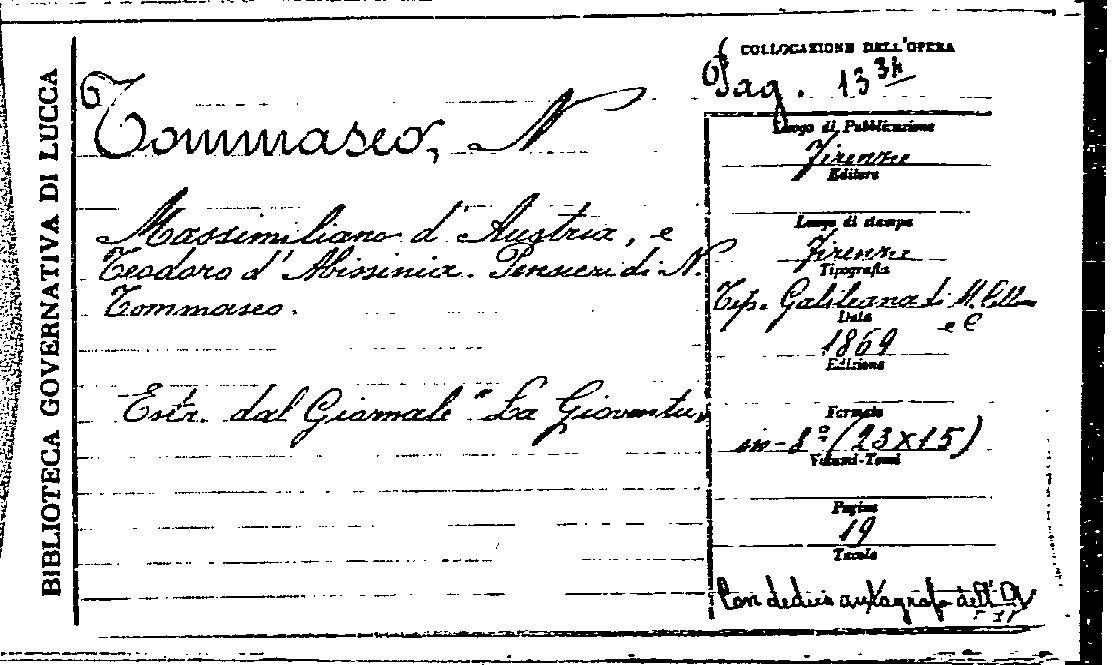 BIBLIOTECA GOVERNATIVA DI LUCCA
Tommaseo, N
Massimiliano d'Austria, e
Teodoro d'Abissinia. Pensieri di N.
Tommaseo.
Estr. dal Giornale "La Gioventù"
COLLOCAZIONE DELL'OPERA
Pag. 13
Luogo di Pubblicazione
Firenze
Editore
Luogo di stampa
Firenze
Tipografia
Tip. Galileiana di M. Cellini
e C
Data
1869
Edizione
Formato
in-8º (23x15)
Volumi-Tomi
Pagine
19
Tavole
Con dedica autografa dell'A